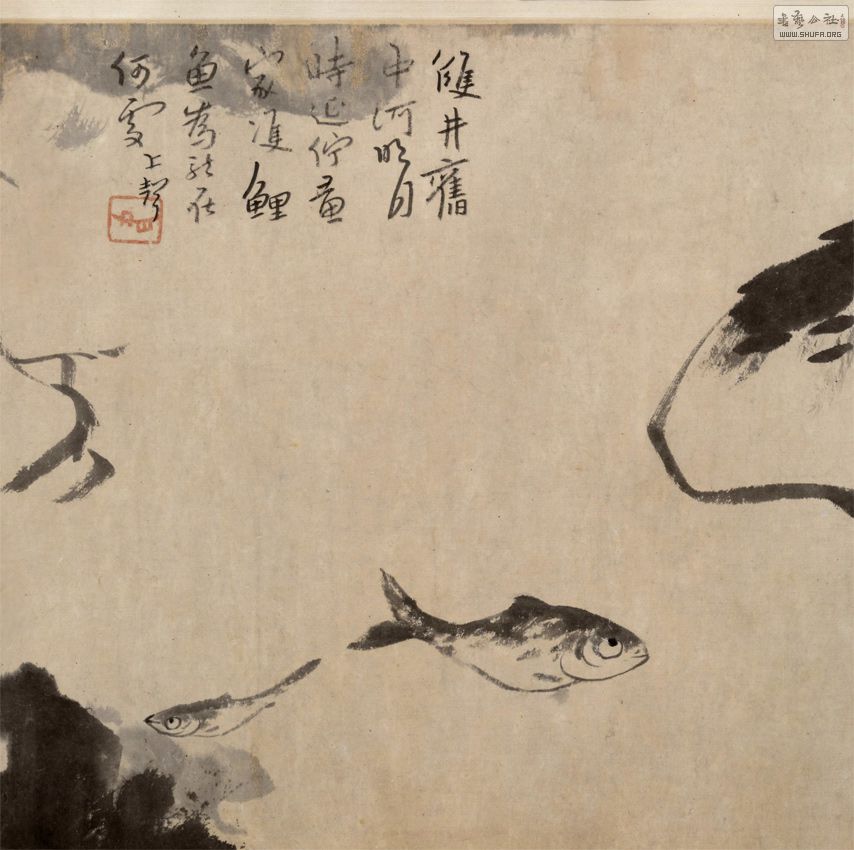 雙井舊
中河明月
時延佇黃
家雙鯉
魚為龍在
何處上聲
书艺公社
WWW.SHUFA.ORG